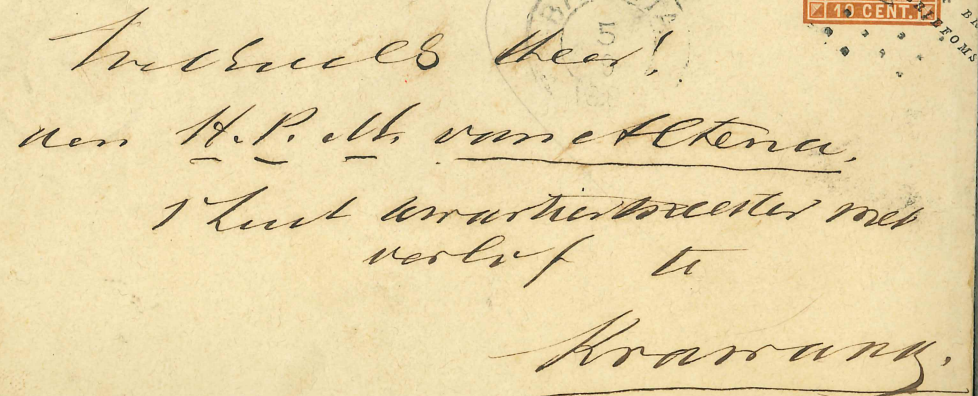 10 CENT.
WelEdele Heer!
den H. P. M. van Altena.
1e Luit kwartiermeester met
verlof te
Krawang.